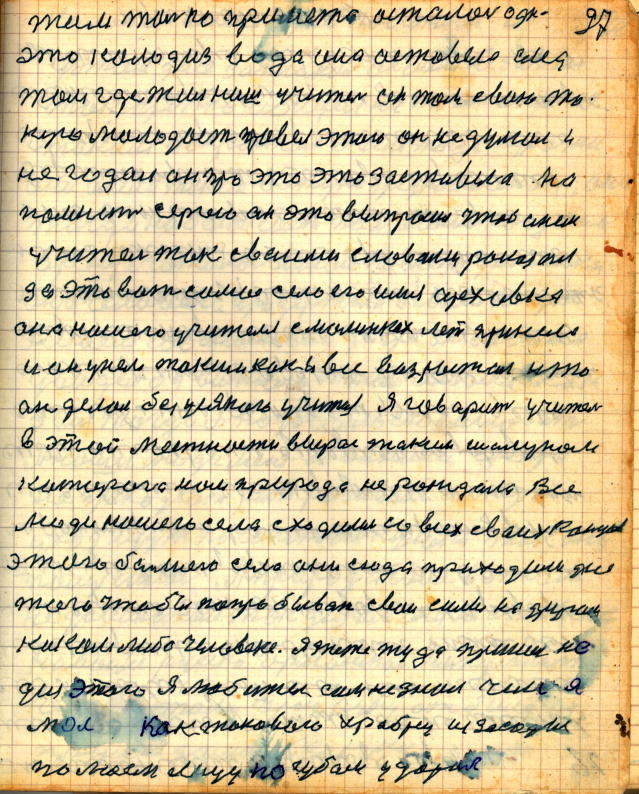 97
там только примета осталась одн-
это колодиз вода она оставела след
том где жил наш учител он там свою
молодост провел этого он не думал и
не годал он про это это заставила на
помнит серого он это выпросил чтоб
учител так своими словами
да это вот самое село его имя ореховка
она нашего учителя с малинких лет принела
и он у нем таким как и все возростал и то
он делал без усякого учител Я говарит учител
в этой местности вырос таким шалуном
каторога нам природа не рождала Все
люди нашего села сходили со всех своих концов
этого балшего села они сюда приходили дле
того чтобы попробыват свои сили на другом
каком либо человеке. Я тоже туда пришел не
для этого Я любител сам не знал чем я
мол Как таковова храбрец
по моем лицу по губам ударил